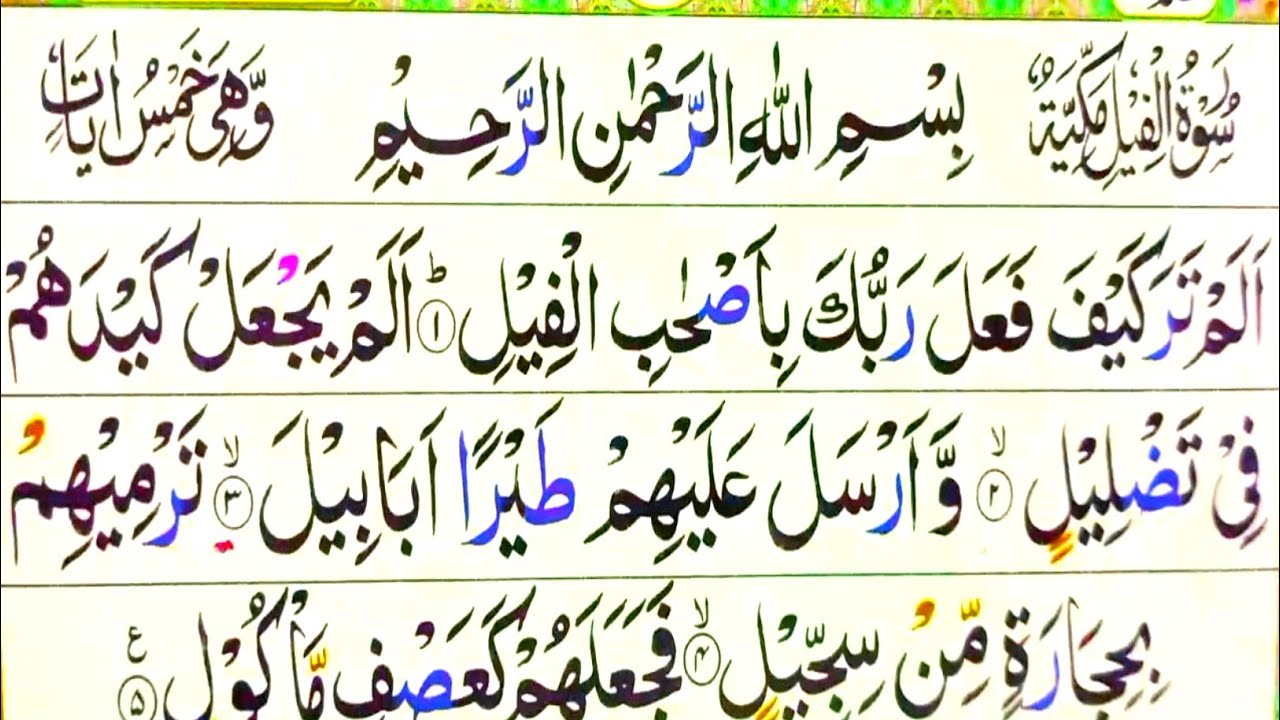 سُوْرَةُ الْفِيْلِ مَكِّيَّةٌ بِسْمِ اللهِ الرَّحْمٰنِ الرَّحِيْمِ وَّهِیَ خَمْسُ اٰیَاتٍ
اَلَمْ تَرَ كَيْفَ فَعَلَ رَبُّكَ بِاَصْحٰبِ الْفِيْلِ ؕ۱ اَلَمْ يَجْعَلْ كَيْدَهُمْ
فِیْ تَضْلِيْلٍ ۙ۲ وَّ اَرْسَلَ عَلَيْهِمْ طَيْرًا اَبَابِيْلَ ۙ۳ تَرْمِيْهِمْ
بِحِجَارَةٍ مِّنْ سِجِّيْلٍ ۙ۴ فَجَعَلَهُمْ كَعَصْفٍ مَّاْكُوْلٍ ۵ ع